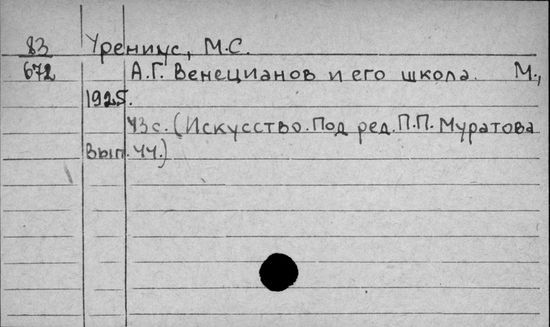 83 Урениус, М.С.
672 А.Г. Венецианов и его школа. М.,
1925.
43с. (Искусство. Под ред. П.П. Муратова
Вып. 44.)